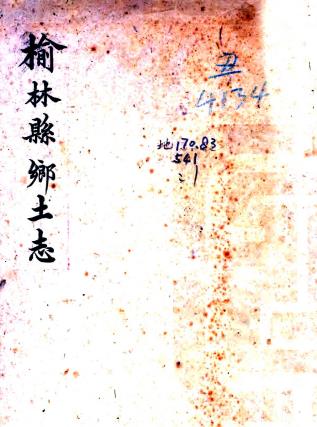 榆林縣鄉土志
丑
4834
地170.83
541